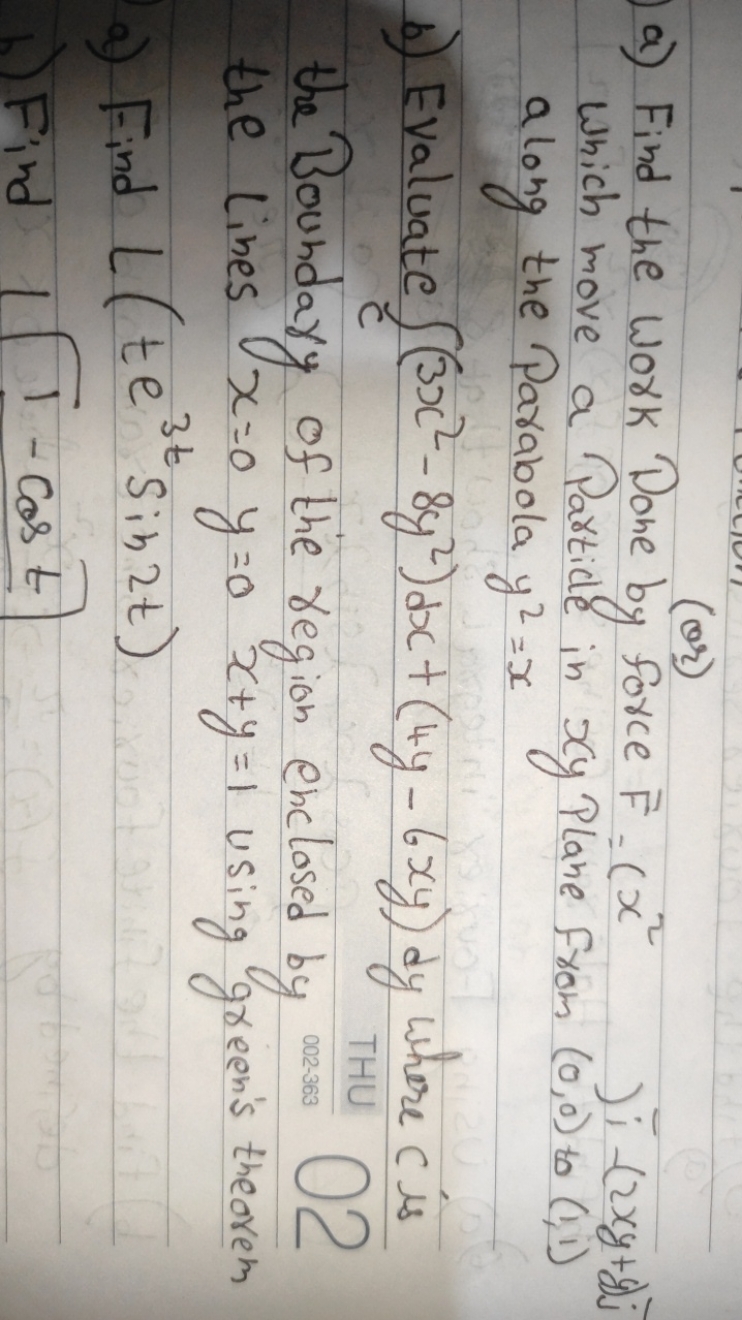 (or)
a) Find the work Done by force F̄ = (x²   )ī - (2xy+y)j̄
which move a Particle in xy Plane from (0,0) to (1,1)
along the Parabola y² = x
b) Evaluate ∫c (3x² - 8y²)dx + (4y - 6xy)dy where C is
THU
the Boundary of the region enclosed by
002-363
02
the lines x=0 y=0 x+y=1 using green's theorem
a) Find L(te³ᵗ Sin2t)
b) Find L[1 - cos t